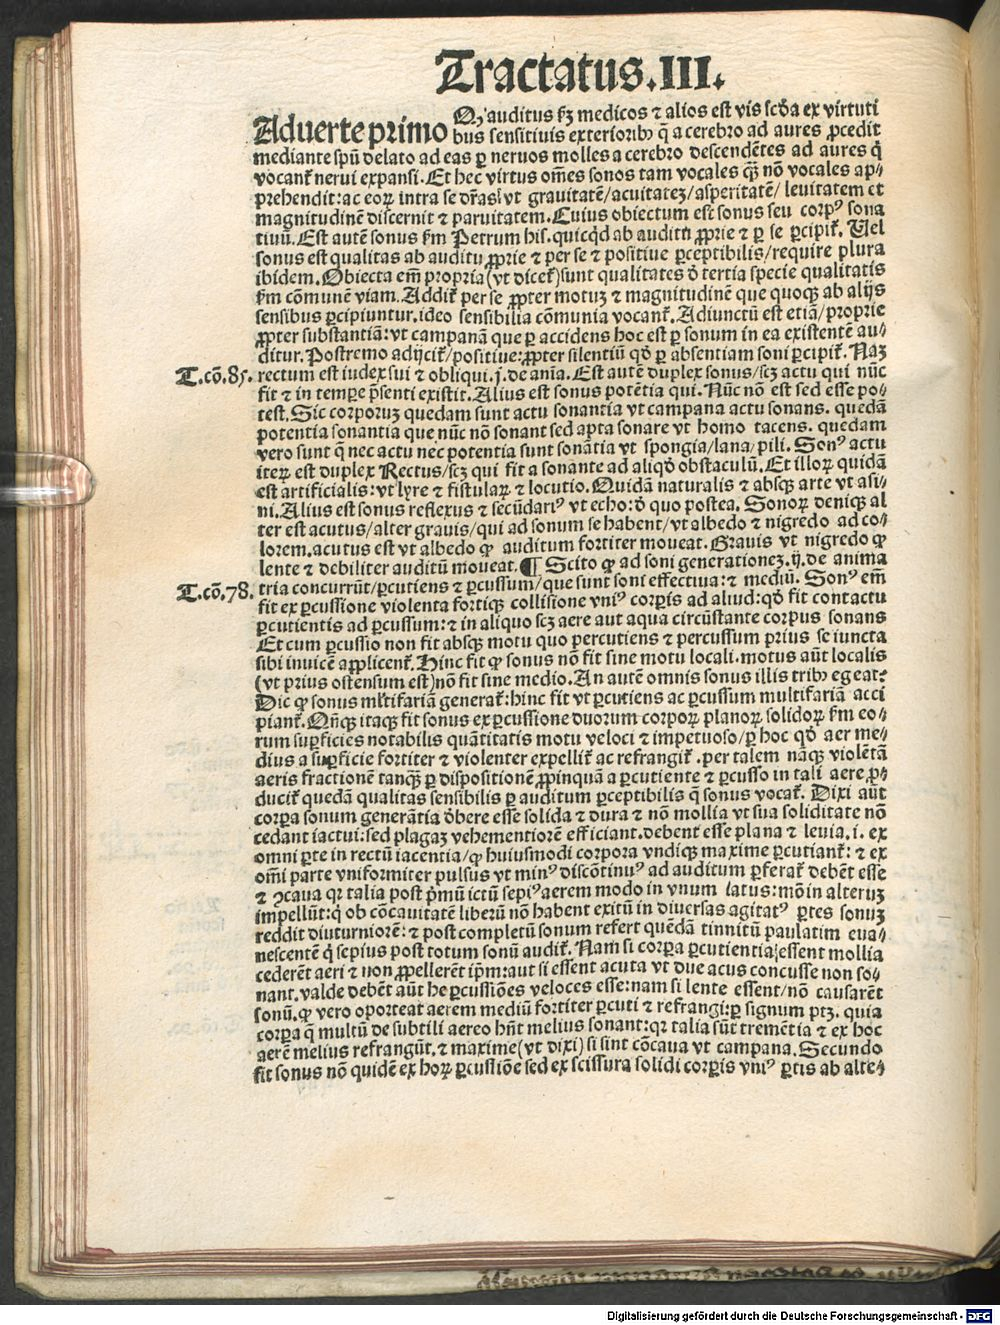 Tractatus.III.
Aduerte primo Qꝫ auditus ẜm medicos ⁊ alios est vis scďa ex virtuti
bus sensitiuis exterioribꝰ q̄ a cerebro ad aures ꝓcedit
mediante spū delato ad eas ꝑ neruos molles a cerebro descendētes ad aures q̇
vocant᷑ nerui expansi. Et hec virtus oēs sonos tam vocales quā nō vocales ap⸗
prehendit: ac eoꝝ intra se dr̄as vt grauitatē/acuitatez/asperitatē/ leuitatem et
magnitudinē discernit ⁊ paruitatem. Cuius obiectum est sonus seu corpꝰ sona
tiuū. Est autē sonus ẜm Petrum his. quicqd ab auditu ꝓprie ⁊ ꝑ se ꝑcipit᷑. Uel
sonus est qualitas ab auditu ꝓprie ⁊ per se ⁊ positiue ꝑceptibilis/require plura
ibidem. Obiecta em̄ propria (vt dicet᷑) sunt qualitates ď tertia specie qualitatis
ẜm cōmunē viam. Addit᷑ per se ꝓpter motuz ⁊ magnitudinē que quoqꝫ ab alijs
sensibus ꝑcipiuntur. ideo sensibilia cōmunia vocant᷑. Adiunctū est etiā/proprie
ꝓpter substantiā: vt campanā que ꝑ accidens hoc est ꝑ sonum in ea existentē au⸗
ditur. Postremo adijcit᷑/positiue: ꝓpter silentiū qď ꝑ absentiam soni ꝑcipit᷑. Naz
T.cō.85. rectum est iudex sui ⁊ obliqui.j. de aīa. Est autē duplex sonus/scꝫ actu qui nūc
fit ⁊ in tempe p̄senti existit. Alius est sonus potētia qui. Nūc nō est sed esse po⸗
test. Sic corporuz quedam sunt actu sonantia vt campana actu sonans. quedā
potentia sonantia que nūc nō sonant sed apta sonare vt homo tacens. quedam
vero sunt q̄ nec actu nec potentia sunt sonātia vt spongia/lana/pili. Sonꝰ actu
iteꝝ est duplex Rectus/scꝫ qui fit a sonante ad aliqď obstaculū. Et illoꝝ quidā
est artificialis: vt lyre ⁊ fistulaꝝ ⁊ locutio. Quidā naturalis ⁊ absqꝫ arte vt asi⸗
ni. Alius est sonus reflexus ⁊ secūdariꝰ vt echo: ď quo postea. Sonoꝝ deniqꝫ al
ter est acutus/alter grauis/qui ad sonum se habent/vt albedo ⁊ nigredo ad co⸗
lorem. acutus est vt albedo qꝫ auditum fortiter moueat. Grauis vt nigredo qꝫ
lente ⁊ debiliter auditū moueat. ¶ Scito qꝫ ad soni generationez.ij. de anima
T.cō.78. tria concurrūt/ꝑcutiens ⁊ ꝑcussum/que sunt soni effectiua: ⁊ mediū. Sonꝰ em̄
fit ex ꝑcussione violenta fortiqꝫ collisione vniꝰ corꝑis ad aliud: qď fit contactu
ꝑcutientis ad ꝑcussum: ⁊ in aliquo scꝫ aere aut aqua circūstante corpus sonans
Et cum ꝑcussio non fit absqꝫ motu quo percutiens ⁊ percussum prius se iuncta
sibi inuicē applicent᷑. Hinc fit qꝫ sonus nō fit sine motu locali. motus aūt localis
(vt prius ostensum est) nō fit sine medio. An autē omnis sonus illis tribꝰ egeat?
Dic qꝫ sonus mltifariā generat᷑: hinc fit vt ꝑcutiens ac ꝑcussum multifariā acci
piant᷑. Qn̄qꝫ itaqꝫ fit sonus ex ꝑcussione duorum corpoꝝ planoꝝ solidoꝝ ẜm eo⸗
rum suꝑficies notabilis quātitatis motu veloci ⁊ impetuoso/ꝑ hoc qď aer me⸗
dius a suꝑficie fortiter ⁊ violenter expellit᷑ ac refrangit᷑. per talem nāqꝫ violētā
aeris fractionē tanqꝫ ꝑ dispositionē ꝓpinquā a ꝑcutiente ⁊ ꝑcusso in tali aere ꝓ⸗
ducit᷑ quedā qualitas sensibilis ꝑ auditum ꝑceptibilis q̄ sonus vocat᷑. Dixi aūt
corꝑa sonum generātia ďbere esse solida ⁊ dura ⁊ nō mollia vt sua soliditate nō
cedant iactui: sed plagaz vehementiorē efficiant. debent esse plana ⁊ leuia. i. ex
omni ꝑte in rectū iacentia/qꝫ huiusmodi corpora vndiqꝫ maxime ꝑcutiant᷑: ⁊ ex
om̄i parte vniformiter pulsus vt minꝰ discōtinuꝰ ad auditum ꝑferat᷑ debēt esse
⁊ ꝯcaua qꝛ talia post p̄mū ictū sepiꝰ aerem modo in vnum latus: mō in alteruz
impellūt: q̇ ob cōcauitatē liberū nō habent exitū in diuersas agitatꝰ ꝑtes sonuz
reddit diuturniorē: ⁊ post completū sonum refert quēdā tinnitū paulatim eua⸗
nescentē q̇ sepius post totum sonū audit᷑. Nam si corꝑa ꝑcutientia essent mollia
cederēt aeri ⁊ non ꝓpellerēt ip̄m: aut si essent acuta vt due acus concusse non so⸗
nant. valde debēt aūt he ꝑcussiōes veloces esse: nam si lente essent/nō causarēt
sonū. qꝫ vero oporteat aerem mediū fortiter ꝑcuti ⁊ refrangi: ꝑ signum ptꝫ. quia
corꝑa q̄ multū de subtili aereo hn̄t melius sonant: qꝛ talia sūt tremētia ⁊ ex hoc
aerē melius refrangūt. ⁊ maxime (vt dixi) si sint cōcaua vt campana. Secundo
fit sonus nō quidē ex hoꝝ ꝑcussiōe sed ex scissura solidi corꝑis vniꝰ ꝑtis ab alte⸗
Digitalisierung gefördert durch die Deutsche Forschungsgemeinschaft - DFG